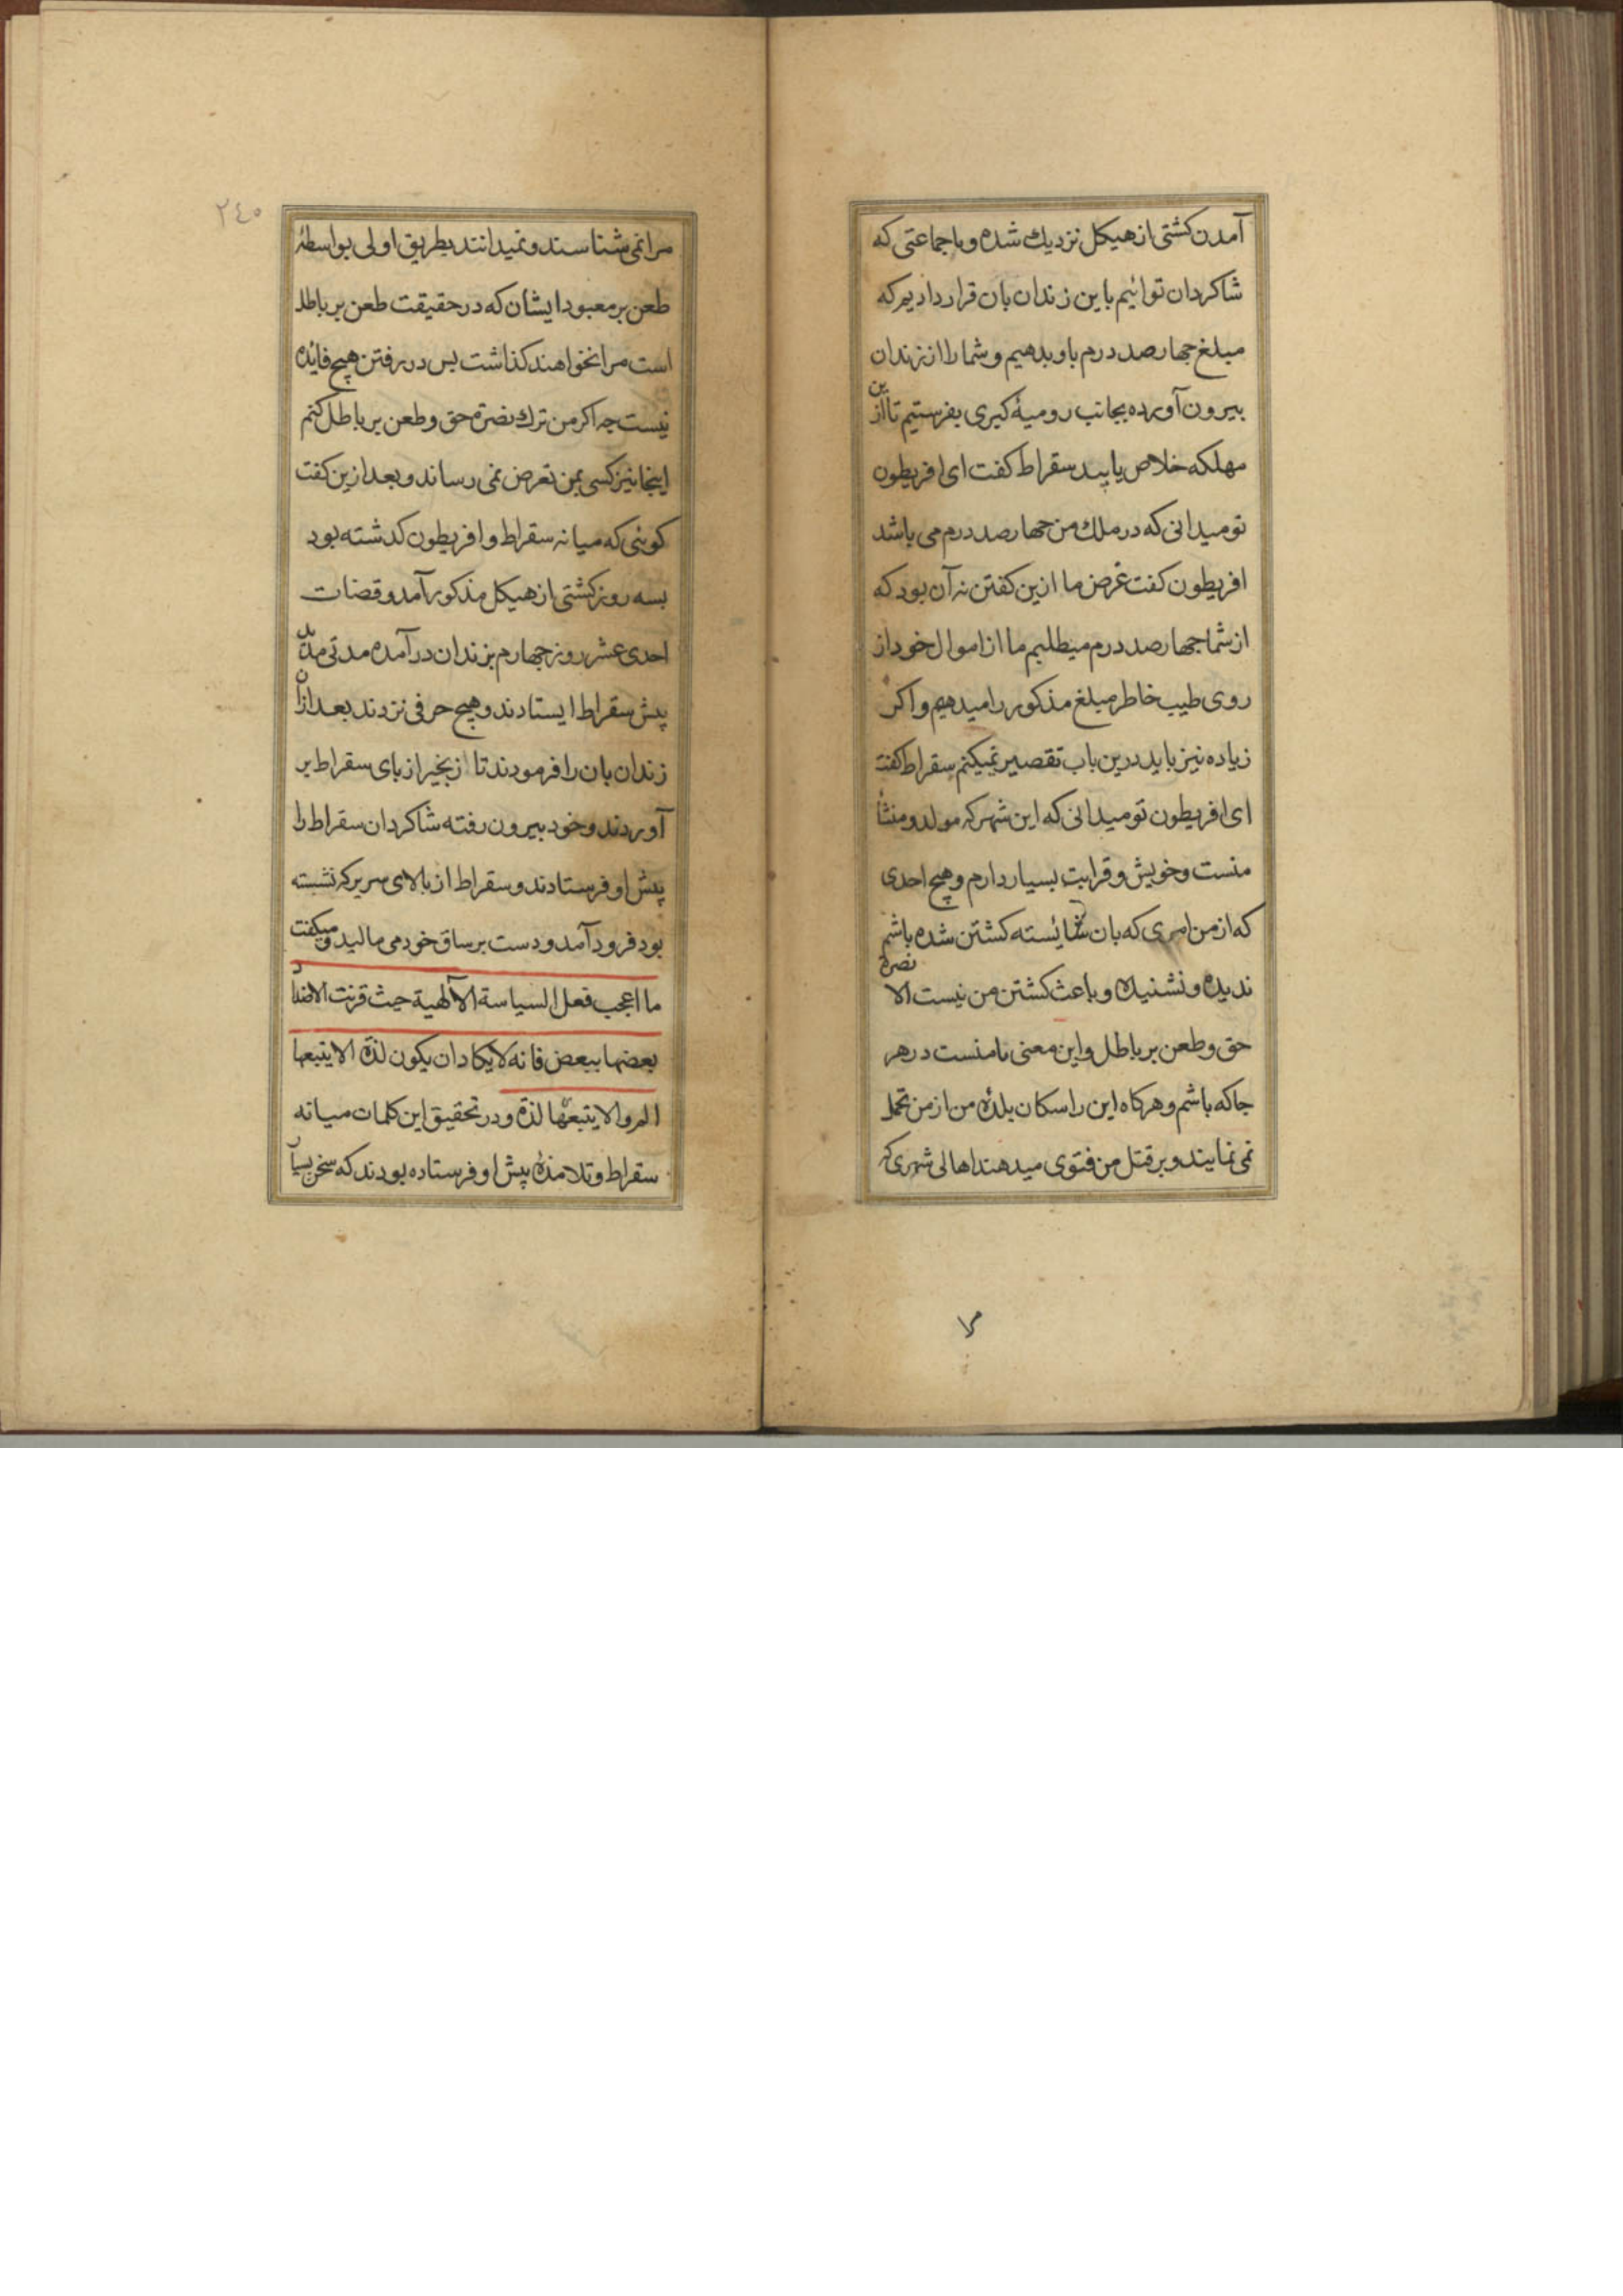 آمدن کشتی از هیکل نزدیک شده و با جماعتی که
شاکردان توائیم باین زندان بان قرار دادیم که
مبلغ جهار صد درم باو بدهیم و شما را از زندان
بیرون آورده بجانب رومیهٔ کبری بفرستیم تا ازین
مهلکه خلاص یابید سقراط کفت ای افریطون
تو میدانی که در ملک من جهار صد درم می باشد
افریطون کفت غرض ما ازین کفتن نه آن بود که
از شما جهار صد درم میطلبیم ما از اموال خود از
روی طیب خاطر مبلغ مذکور را میدهیم و اکر
زیاده نیز باید درین باب تقصیر نمیکنم سقراط کفت
ای افریطون تو میدانی که این شهر که مولد و منشأ
منست و خویش و قرابت بسیار دارم و هیچ احدی
که از من امری که بان شائسته کشتن شده باشم
ندیده و نشنیده و باعث کشتن من نیست الا نصرة
حق و طعن بر باطل و این معنی با منست در هر
جا که باشم و هرکاه این را سکان بلدهٔ من از من تحمل
نمی نمایند و بر قتل من فتوی میدهند اهالی شهری که
مرا
٢٤٥
مرا نمی شناسند و نمیدانند بطریق اولی بواسطهٔ
طعن بر معبود ایشان که در حقیقت طعن بر باطل
است مرا نخواهند کذاشت بس در رفتن هیچ فائده
نیست جه اکر من ترک نصرة حق و طعن بر باطل کنم
اینجا نیز کسی بمن تعرض نمی رساند و بعد ازین کفت
کوئی که میانه سقراط و افریطون کدشته بود
بسه روز کشتی از هیکل مذکور آمد و قضات
احدی عشر روز جهارم بزندان در آمده مدتی مدید
پیش سقراط ایستادند و هیچ حرفی نزدند بعد ازان
زندان بان را فرمودند تا زنجیر از بای سقراط بر
آوردند و خود بیرون رفته شاکردان سقراط را
پیش او فرستادند و سقراط از بالای سریر که نشسته
بود فرود آمد و دست بر ساق خود می مالید و میکفت
ما اعجب فعل السیاسة الآلهیة حیث قرنت الاضداد
بعضها ببعض فانه لا یکاد ان یکون لذة الا یتبعها
الم و الا یتبعها لذة و در تحقیق این کلمات میانه
سقراط و تلامذهٔ پیش او فرستاده بودند که سخن بسیار